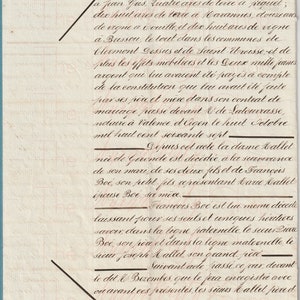 à Jean Bos, quatre ares de terre à Paquet,
dix huit ares de terre à Havannes, douze ares
de vigne à Grenille, et dix huit ares de vigne
à Brenac, le tout dans les communes de
Clermont Dessus et de Saint Urcisse et de
plus les effets mobiliers et les Deux mille francs
argent qui lui avaient été payés à compte
de la constitution qui lui avait été faite
par ses père et mère dans son contrat de
mariage passé devant Me de Labourasse
notaire à Valence d'Agen le huit Octobre
mil huit cent soixante sept
Depuis cet acte la dame Mallet
née de Guionde est décédée à la survivance
de son mari, de ses deux fils et de François
Bos, son petit fils représentant Dame Mallet
épouse Bos sa mère
François Bos est lui même décédé
laissant pour ses seuls et uniques héritiers
savoir dans la ligne paternelle le sieur
Bos son père, et dans la ligne maternelle le
sieur Joseph Mallet son grand père
Suivant acte passé ce jour devant
le dit Me qui sera enregistré avec
ou avant ces présentes, les sieurs Mallet père et